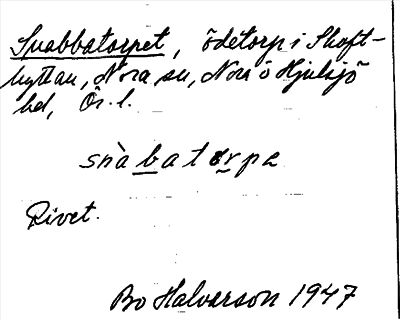 Snabbatorpet, ödetorp i Skaft-
hyttan, Nora sn, Nora o Hjulsjö
bd, Ör. l.
snàbatorpe
Rivet.
Bo Halvarson 1947